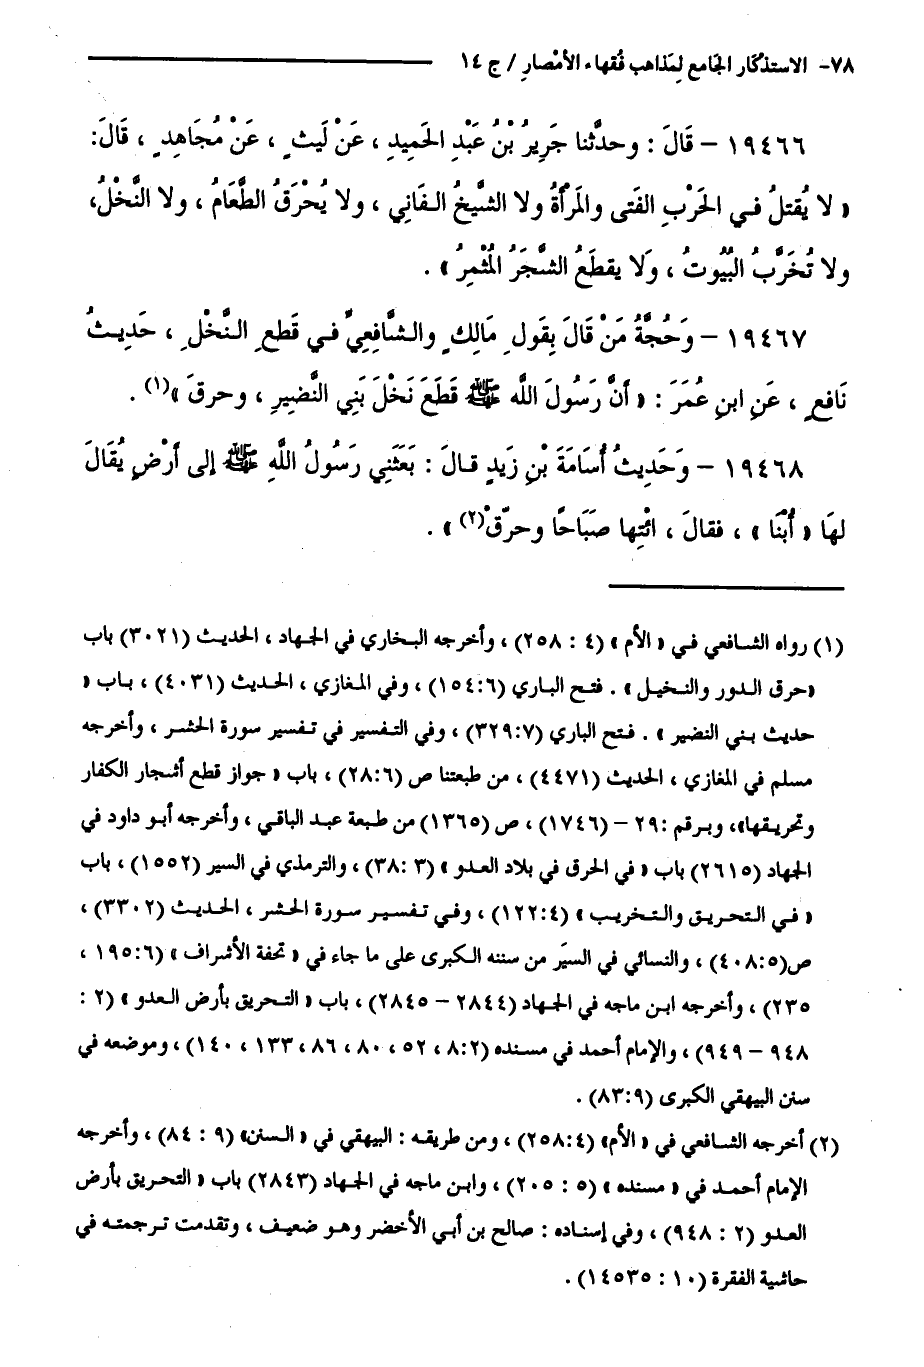 ٧٨- الاستذْكار الجَامع لِمَذاهب فُقهاء الأمْصارِ / ج ١٤
١٩٤٦٦ – قَالَ : وحدَّثنا جَرِيرُ بْنُ عَبْدِ الحَمِيدِ ، عَنْ لَيثٍ ، عَنْ مُجَاهِدٍ ، قَالَ:
« لا يُقتلُ فـي الحَرْبِ الفَتى والمَرأةُ ولا الشَّيخُ الـفَانِي ، ولا يُحْرَقُ الطَّعَامُ ، ولا النَّخْلُ،
ولا تُخَرَّبُ البُيُوتُ ، وَلا يقطَعُ الشَّجَرُ المُثْمِرُ » .
١٩٤٦٧ – وَحُجَّةُ مَنْ قَالَ بِقَولِ مَالِكٍ والـشَّافِعِيِّ فـي قَطعِ الـنَّخْلِ ، حَدِيـثُ
نَافعٍ ، عَنِ ابنِ عُمَرَ : « أنَّ رَسُولَ اللَّه ﷺ قَطَعَ نَخْلَ بَنِي النَّضِيرِ ، وحرقَ »(١) .
١٩٤٦٨ – وَحَدِيثُ أسَامَةَ بْنِ زَيدٍ قـالَ : بَعَثنِي رَسُولُ اللَّهِ ﷺ إلى أرْضٍ يُقَالَ
لهَا « أُبْنَا » ، فقالَ ، ائْتِها صَبَاحًا وحرّقْ(٢) » .
(١) رواه الشـافعي فـي « الأم » (٤ : ٢٥٨) ، وأخرجه البـخاري في الجـهاد ، الحديـث (٣٠٢١) باب
«حرق الـدور والنـخيل » . فتـح الباري (١٥٤:٦) ، وفي المـغازي ، الحـديث (٤٠٣١) ، بـاب «
حديث بـني النضير » . فـتح الباري (٣٢٩:٧) ، وفي التـفسير في تـفسير سورة الحشـر ، وأخرجه
مسلم في المغازي ، الحديث (٤٤٧١) ، من طبعتنا ص (٢٨:٦) ، باب « جواز قطع أشجار الكفار
وتحريـقها»، وبـرقم :٢٩ – (١٧٤٦) ، ص (١٣٦٥) من طـبعة عبـد الباقي ، وأخرجه أبـو داود في
الجهاد (٢٦١٥) باب « في الحرق في بلاد العـدو » (٣ :٣٨) ، والترمذي في السير (١٥٥٢) ، باب
« فـي الـتحريـق والـتـخريـب » (١٢٢:٤) ، وفـي تـفسـير سـورة الحـشر ، الحـديـث (٣٣٠٢) ،
ص(٤٠٨:٥) ، والنسائي في السيَر من سننه الـكبرى على ما جاء في « تحفة الأشراف » (١٩٥:٦ ،
٢٣٥) ، وأخرجه ابـن ماجه في الجـهاد (٢٨٤٤ – ٢٨٤٥) ، باب « التـحريق بأرض الـعدو » (٢ :
٩٤٨ – ٩٤٩) ، والإمام أحمد في مسنده (٨:٢ ، ٥٢ ، ٨٠ ، ٨٦ ، ١٣٣ ، ١٤٠) ، وموضعه في
سنن البيهقي الكبرى (٨٣:٩) .
(٢) أخرجه الشافعي في « الأم» (٢٥٨:٤) ، ومن طريقـه : البيهقي في « الـسنن» (٩ : ٨٤) ، وأخرجه
الإمام أحمـد في « مسنده » (٥ : ٢٠٥) ، وابن ماجه في الجـهاد (٢٨٤٣) باب « التحريق بأرض
العـدو (٢ : ٩٤٨) ، وفي إسناده : صالح بن أبـي الأخضر وهـو ضعيف ، وتقدمت تـرجمتـه في
حاشية الفقرة (١٠ : ١٤٥٣٥) .